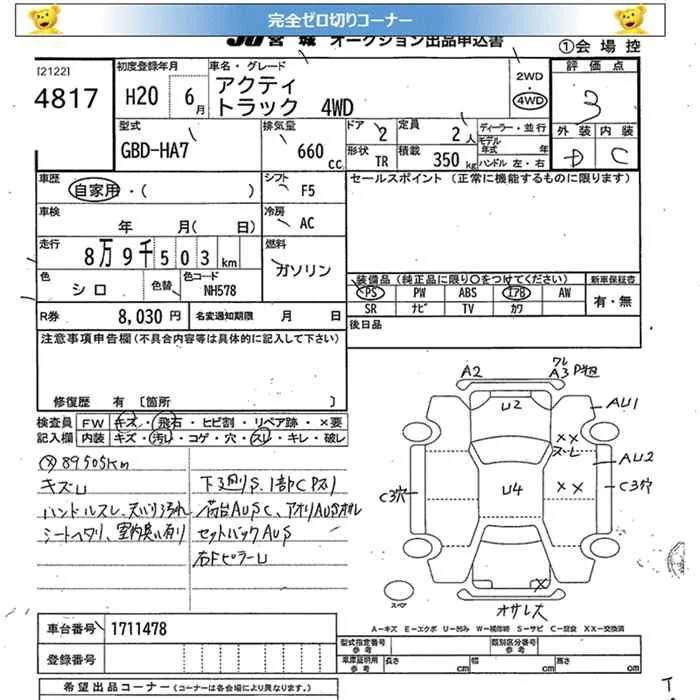 完全ゼロ切りコーナー
JU宮城 オークション出品申込書
①会場控
[2122]
4817
初度登録年月
H20 6月
車名・グレード
アクティ
トラック 4WD
2WD
4WD
評価点
3
外装 内装
D C
型式
GBD-HA7
排気量
660 cc
ドア 2
定員 2人
形状 TR
積載 350 kg
ディーラー・並行
モデル年式 年
ハンドル 左・右
車歴
自家用・( )
シフト F5
セールスポイント (正常に機能するものに限ります)
車検
年 月( 日)
冷房 AC
走行
8万9千503km
燃料
ガソリン
色
シロ
色替
色コード
NH578
装備品(純正品に限り○をつけてください)
新車保証書
PS PW ABS エアB AW
SR ナビ TV カワ
有・無
R券 8,030円
名変通知期限 月 日
後日品
注意事項申告欄(不具合内容等は具体的に記入して下さい)
修復歴 有 [箇所 ]
検査員記入欄
FW キズ・飛石・ヒビ割・リペア跡・×要
内装 キズ・汚れ・コゲ・穴・スレ・キレ・破レ
89505Km
キズU
ハンドルスレ、天バリ汚れ
シートヘタリ、室内臭い有り
下廻りS.1部C
荷台AUSC、アオリAUS
セットバックAUS
右FピラーU
A2
A3
U2
AU1
××
スレ
AU2
C3穴
U4
××
C3穴
×
スペア
オサレズ
A-キズ E-エクボ U-凹み W-補修跡 S-サビ C-腐食 XX-交換済
車台番号 1711478
登録番号
型式指定番号 参考
類別区分番号 参考
車庫証明用 参考
長さ cm 幅 cm 高さ cm
希望出品コーナー(コーナーは各会場により異なります。)